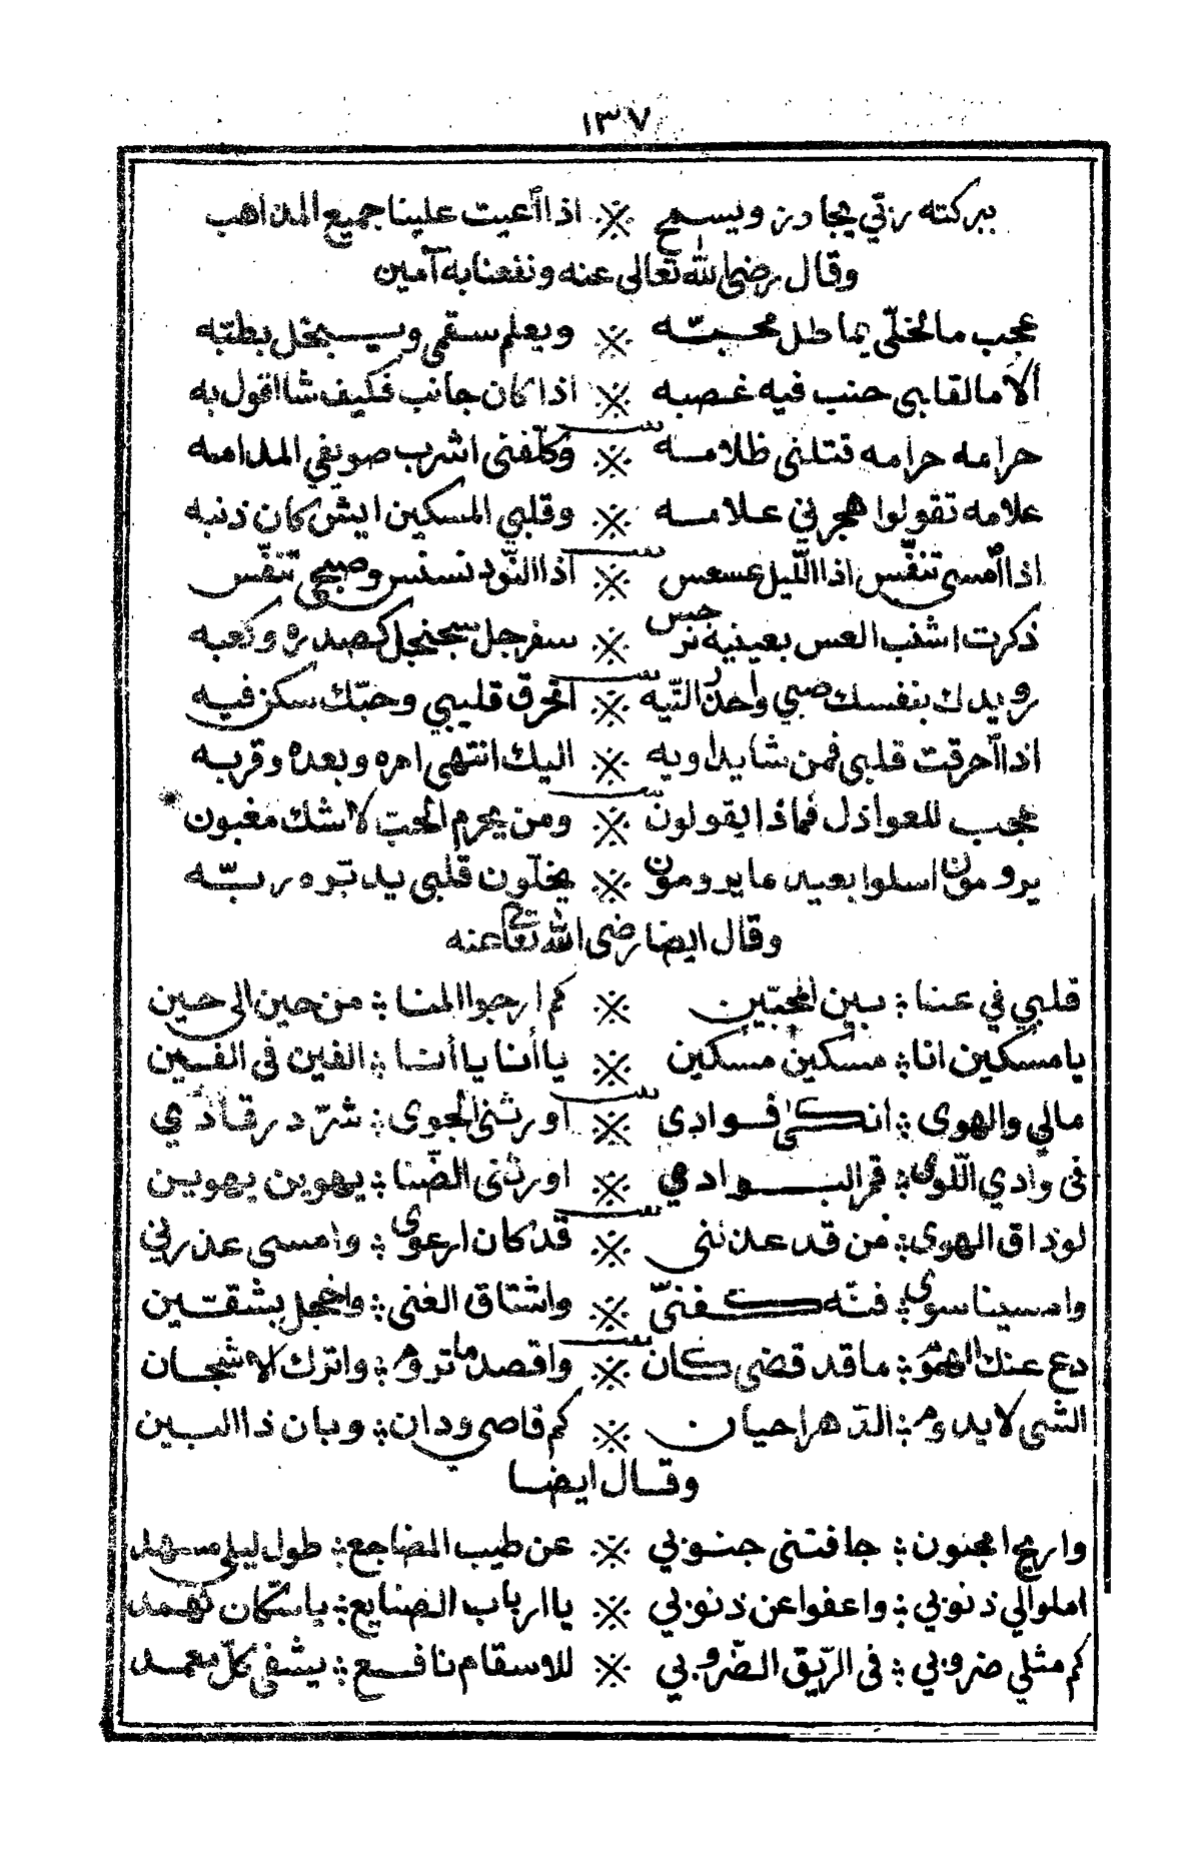 ١٣٧
ببركته ربّي يجاوز ويسمح ※ اذا أعيت علينا جميع المذاهب
وقال رضي الله تعالى عنه ونفعنا به آمين
عجب ما لخلّي يماطل محبّه ※ ويعلم سقمي ويبخل بطبّه
ألا ما لقلبي حنب فيه غصبه ※ اذا كان جانب فكيف شا اقول به
حرامه حرامه قتلني ظلامه ※ وكلّفني اشرب صويفي المدامه
علامه تقولوا هجرني علامه ※ وقلبي المسكين ايش كان ذنبه
اذا أمسى تنفّس اذا اللّيل عسعس ※ اذا النّود نسنس وصبحي تنفّس
ذكرت اشنب العس بعينيه نرجس ※ سفرجل سجنجل كصدره وكعبه
رويدك بنفسك صبي واحذر التّيه ※ اتحرق قليبي وحبّك سكن فيه
اذا أحرقت قلبي فمن شا يداويه ※ اليك انتهى امره وبعده وقربه
عجب للعواذل فماذا يقولون ※ ومن يحرم الحب لا شك مغبون
يرومون اسلوا بعيد ما يرومون ※ يخلّون قلبي يدتبره ربّه
وقال ايضا رضى الله تعا عنه
قلبي في عنا ؛ بين المحبّين ※ كم ارجوا المنا ؛ من حين الى حين
يا مسكين انا ؛ مسكين مسكين ※ يا أنا يا أنا ؛ الفين في الفين
مالي والهوى ؛ انكى فوادى ※ اورثني الجوى ؛ شرّد رقادي
في وادي اللّوى ؛ قمر البوادي ※ اورثنى الضّنا ؛ يهوين يهوين
لو ذاق الهوى ؛ من قد عذلنى ※ قد كان ارعوى ؛ وامسى عذرني
وامسينا سوى ؛ فنّه كفنّي ※ واشتاق الغنى ؛ واخجل بشقتين
دع عنك الهمو ؛ ما قد قضى كان ※ واقصد ما تروم ؛ واترك الاشجان
الشي لا يدوم ؛ الدّهر احيان ※ كم قاصي ودان ؛ وبان ذا البين
وقال ايضا
واريح المجنون ؛ جافتنى جنوبي ※ عن طيب المضاجع ؛ طول ليلي سهد
املوا لي ذنوبي ؛ واعفوا عن ذنوبي ※ يا ارباب الصنايع ؛ يا سكان نهمد
كم مثلي ضروبي ؛ في الرّيق الضّروبي ※ للاسقام نافع ؛ يشفى كلّ معمد